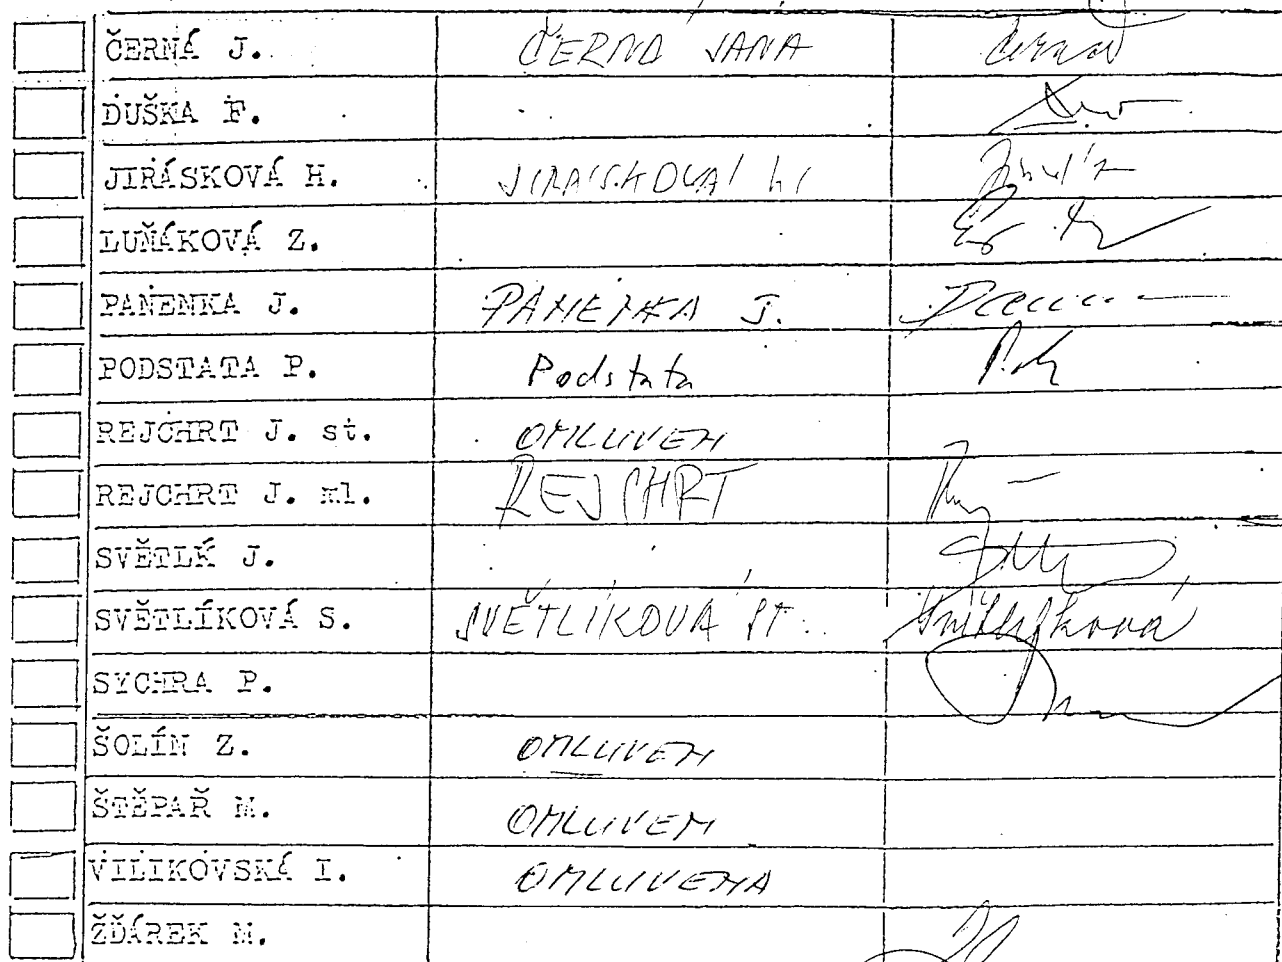 ČERNÁ J. ČERNÁ JANA
DUŠKA F.
JIRÁSKOVÁ H. JIRÁSKOVÁ H
LUŇÁKOVÁ Z.
PANENKA J. PANENKA J.
PODSTATA P. Podstata
REJCHRT J. st. OMLUVEN
REJCHRT J. ml. REJCHRT
SVĚTLÝ J.
SVĚTLÍKOVÁ S. SVĚTLÍKOVÁ ST. Světlíková
SYCHRA P.
ŠOLÍN Z. OMLUVEN
ŠTĚPAŘ M. OMLUVEN
VILIKOVSKÁ I. OMLUVENA
ŽĎÁREK M.